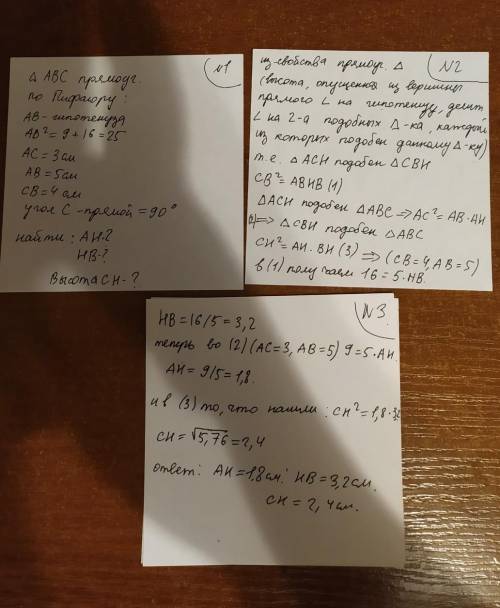 N1
△ ABC прямоуг.
по Пифагору:
AB-гипотенуза
AB² = 9 + 16 = 25
AC = 3 см
AB = 5 см
CB = 4 см
угол C - прямой = 90°
найти: AH-?
HB-?
Высота CH-?
N2
из свойства прямоуг. △
(высота, опущенная из вершины
прямого ∠ на гипотенузу, делит
∠ на 2-а подобных △-ка, каждый
из которых подобен данному △-ку)
т.е. △ ACH подобен △CBH
CB² = ABHB (1)
△ACH подобен △ABC ⇒ AC² = AB·AH
(2) ⇒ △CBH подобен △ABC
CH² = AH·BH (3) ⇒ (CB=4, AB=5)
в (1) получаем 16 = 5·HB.
N3.
HB = 16/5 = 3,2
теперь во (2) (AC=3, AB=5) 9=5·AH.
AH = 9/5 = 1,8.
и в (3) то, что нашли: CH² = 1,8·3,2
CH = √5,76 = 2,4
ответ: AH = 1,8 см; HB = 3,2 см.
CH = 2,4 см.